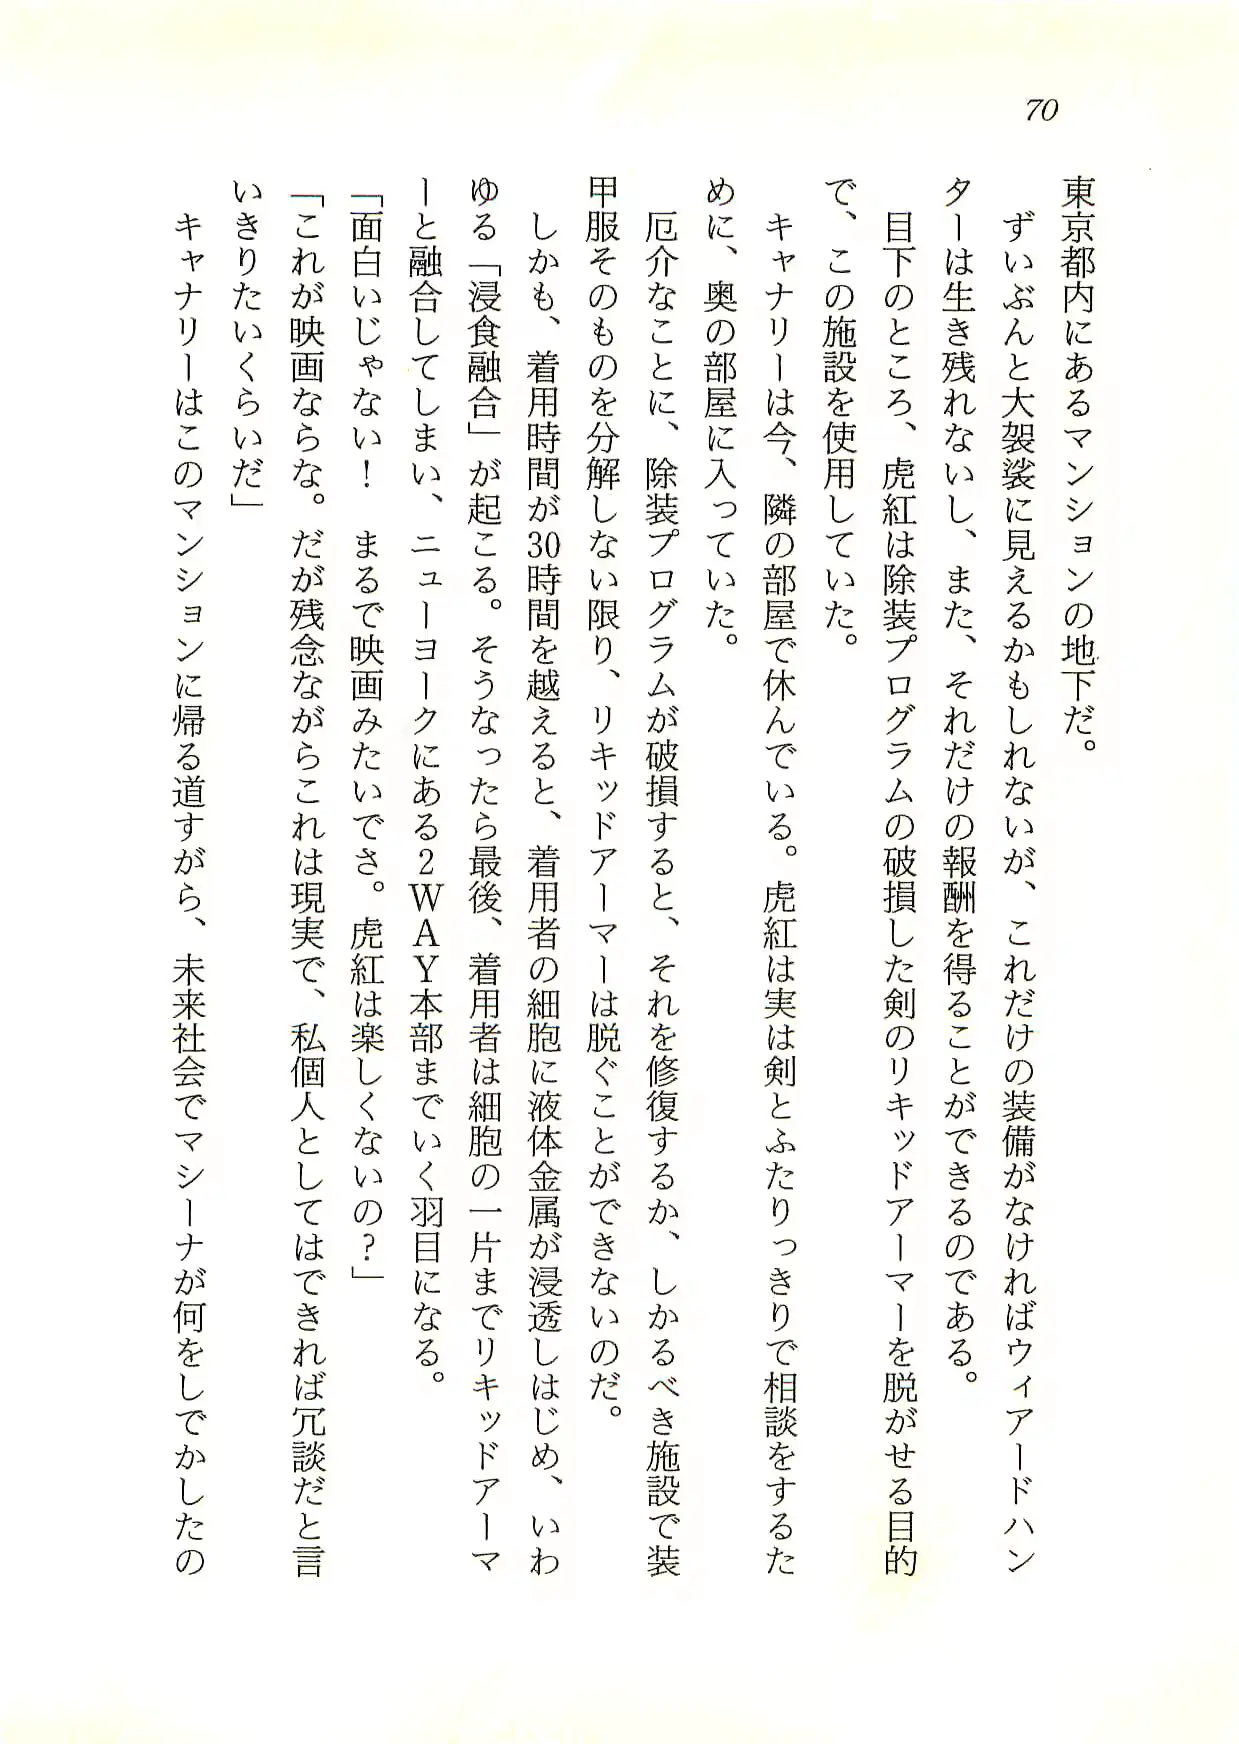 70
東京都内にあるマンションの地下だ。
　ずいぶんと大袈裟に見えるかもしれないが、これだけの装備がなければウィアードハン
ターは生き残れないし、また、それだけの報酬を得ることができるのである。
　目下のところ、虎紅は除装プログラムの破損した剣のリキッドアーマーを脱がせる目的
で、この施設を使用していた。
　キャナリーは今、隣の部屋で休んでいる。虎紅は実は剣とふたりっきりで相談をするた
めに、奥の部屋に入っていた。
　厄介なことに、除装プログラムが破損すると、それを修復するか、しかるべき施設で装
甲服そのものを分解しない限り、リキッドアーマーは脱ぐことができないのだ。
　しかも、着用時間が30時間を越えると、着用者の細胞に液体金属が浸透しはじめ、いわ
ゆる「浸食融合」が起こる。そうなったら最後、着用者は細胞の一片までリキッドアーマ
ーと融合してしまい、ニューヨークにある2WAY本部までいく羽目になる。
「面白いじゃない！　まるで映画みたいでさ。虎紅は楽しくないの？」
「これが映画ならな。だが残念ながらこれは現実で、私個人としてはできれば冗談だと言
いきりたいくらいだ」
　キャナリーはこのマンションに帰る道すがら、未来社会でマシーナが何をしでかしたの